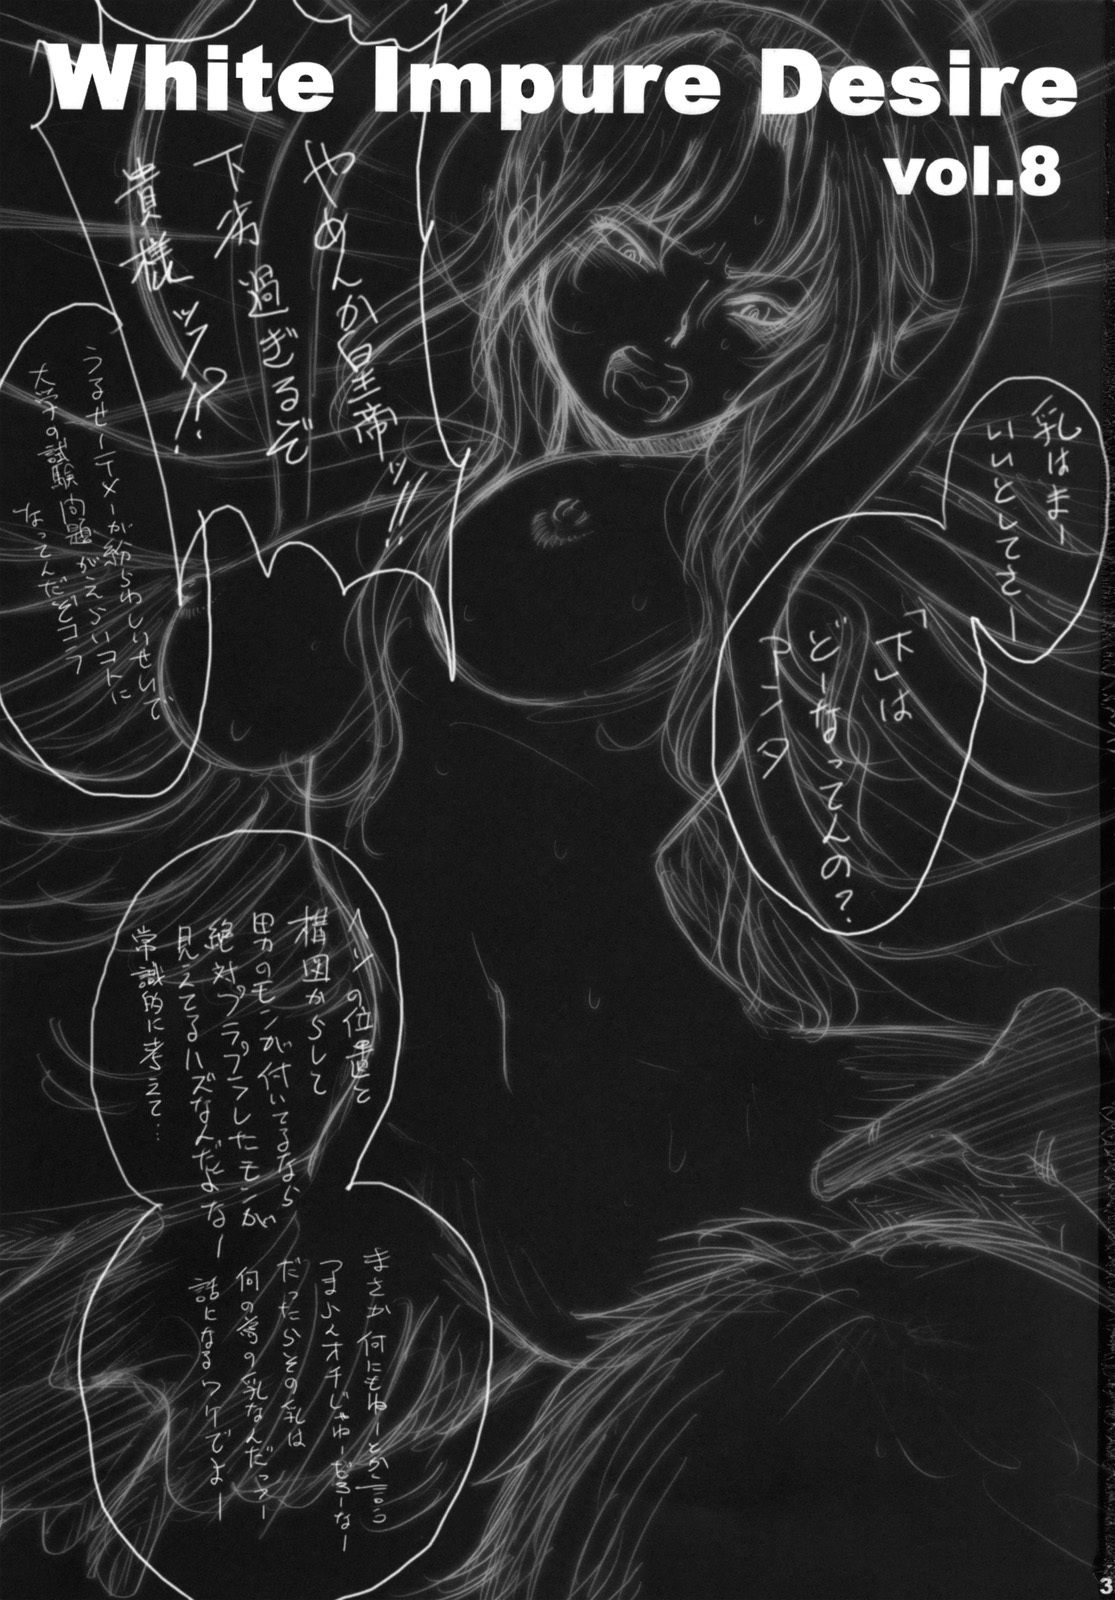 White Impure Desire
vol.8
乳はまー
いいとしてさー
「下」は
どーなってんの？
アンタ
やめんか皇帝ッ!!
下劣過ぎるぞ
貴様ッ!?
うるせーテメーが紛らわしいせいで
大学の試験問題がえらいコトに
なってんだぞコラ
ヘソの位置と
構図からして
男のモンが付いてるなら
絶対プラプラしたモンが
見えてるハズなんだよなー
常識的に考えて…
まさか何にもねーとか言う
つまらんオチじゃねーだろーなー
だったらその乳は
何の為の乳なんだってー
話になるワケでよー
3